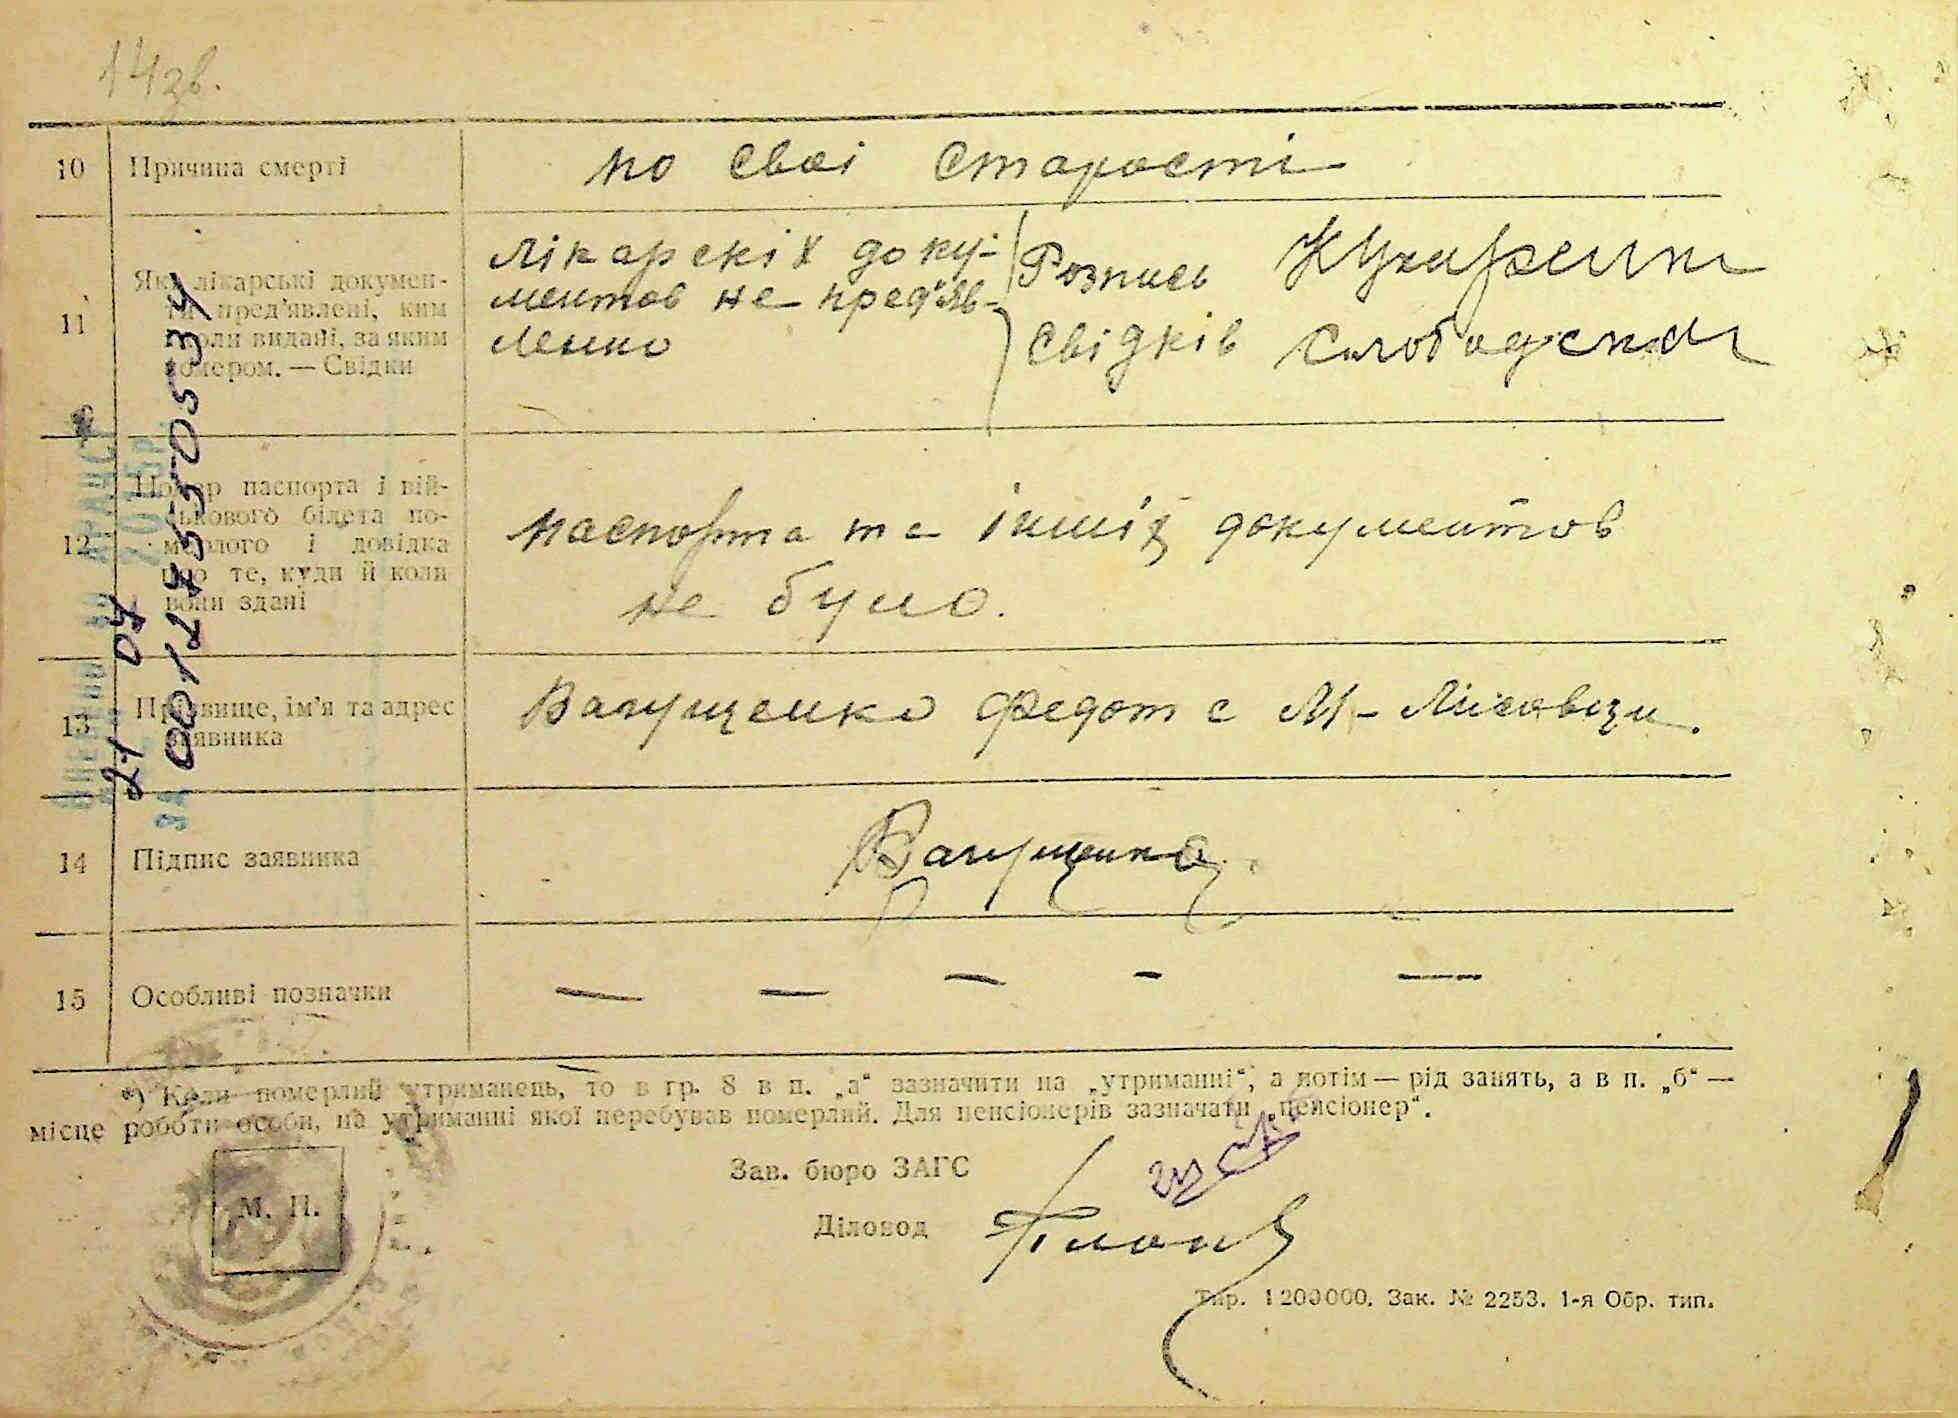 14зв.
10 Причина смерті по своі старості
11 Які лікарські докумен-
ти пред'явлені, ким
і коли видані, за яким
номером. — Свідки
лікарскіх доку-
ментов не пред'яв-
ленно
Розпись
Свідків
12 Номер паспорта і вій-
ськового білета по-
мерлого і довідка
про те, куди й коли
вони здані
паспорта та інших документов
не було.
13 Прізвище, ім'я та адрес
заявника
Ващенко Федот с М-
14 Підпис заявника
15 Особливі позначки — — — — —
21 04
00128550534
*) Коли померлий утриманець, то в гр. 8 в п. „а“ зазначити на „утриманні“, а потім — рід занять, а в п. „б“ —
місце роботи особи, на утриманні якої перебував померлий. Для пенсіонерів зазначати „пенсіонер“.
Зав. бюро ЗАГС
Діловод
М. П.
Тир. 1200000. Зак. № 2253. 1-я Обр. тип.